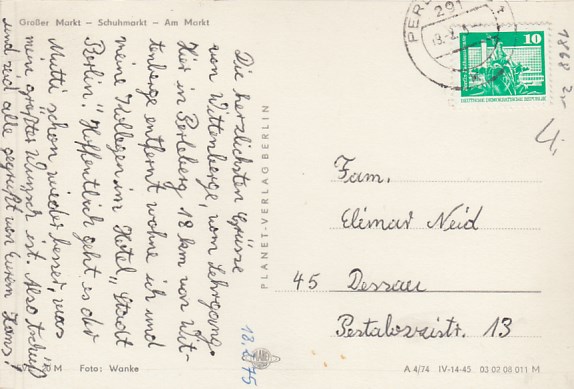 Großer Markt – Schuhmarkt – Am Markt
Die herzlichsten Grüsse
von Wittenberge, vom Lehrgang.
Hier in Perleberg 12 km von Wit-
tenberge entfernt wohne ich und
meine Kollegen im Hotel „Stadt
Berlin." Hoffentlich geht es der
Mutti schon wieder besser, was
mein größter Wunsch ist. Also tschüß
und seid alle gegrüßt von Eurem Hans.
18.2.75
PLANET-VERLAG BERLIN
291
10
DEUTSCHE DEMOKRATISCHE REPUBLIK
1868
Fam.
Elimar Neid
45 Dessau
Pestalozzistr. 13
Foto: Wanke
A 4/74 IV-14-45 03 02 08 011 M